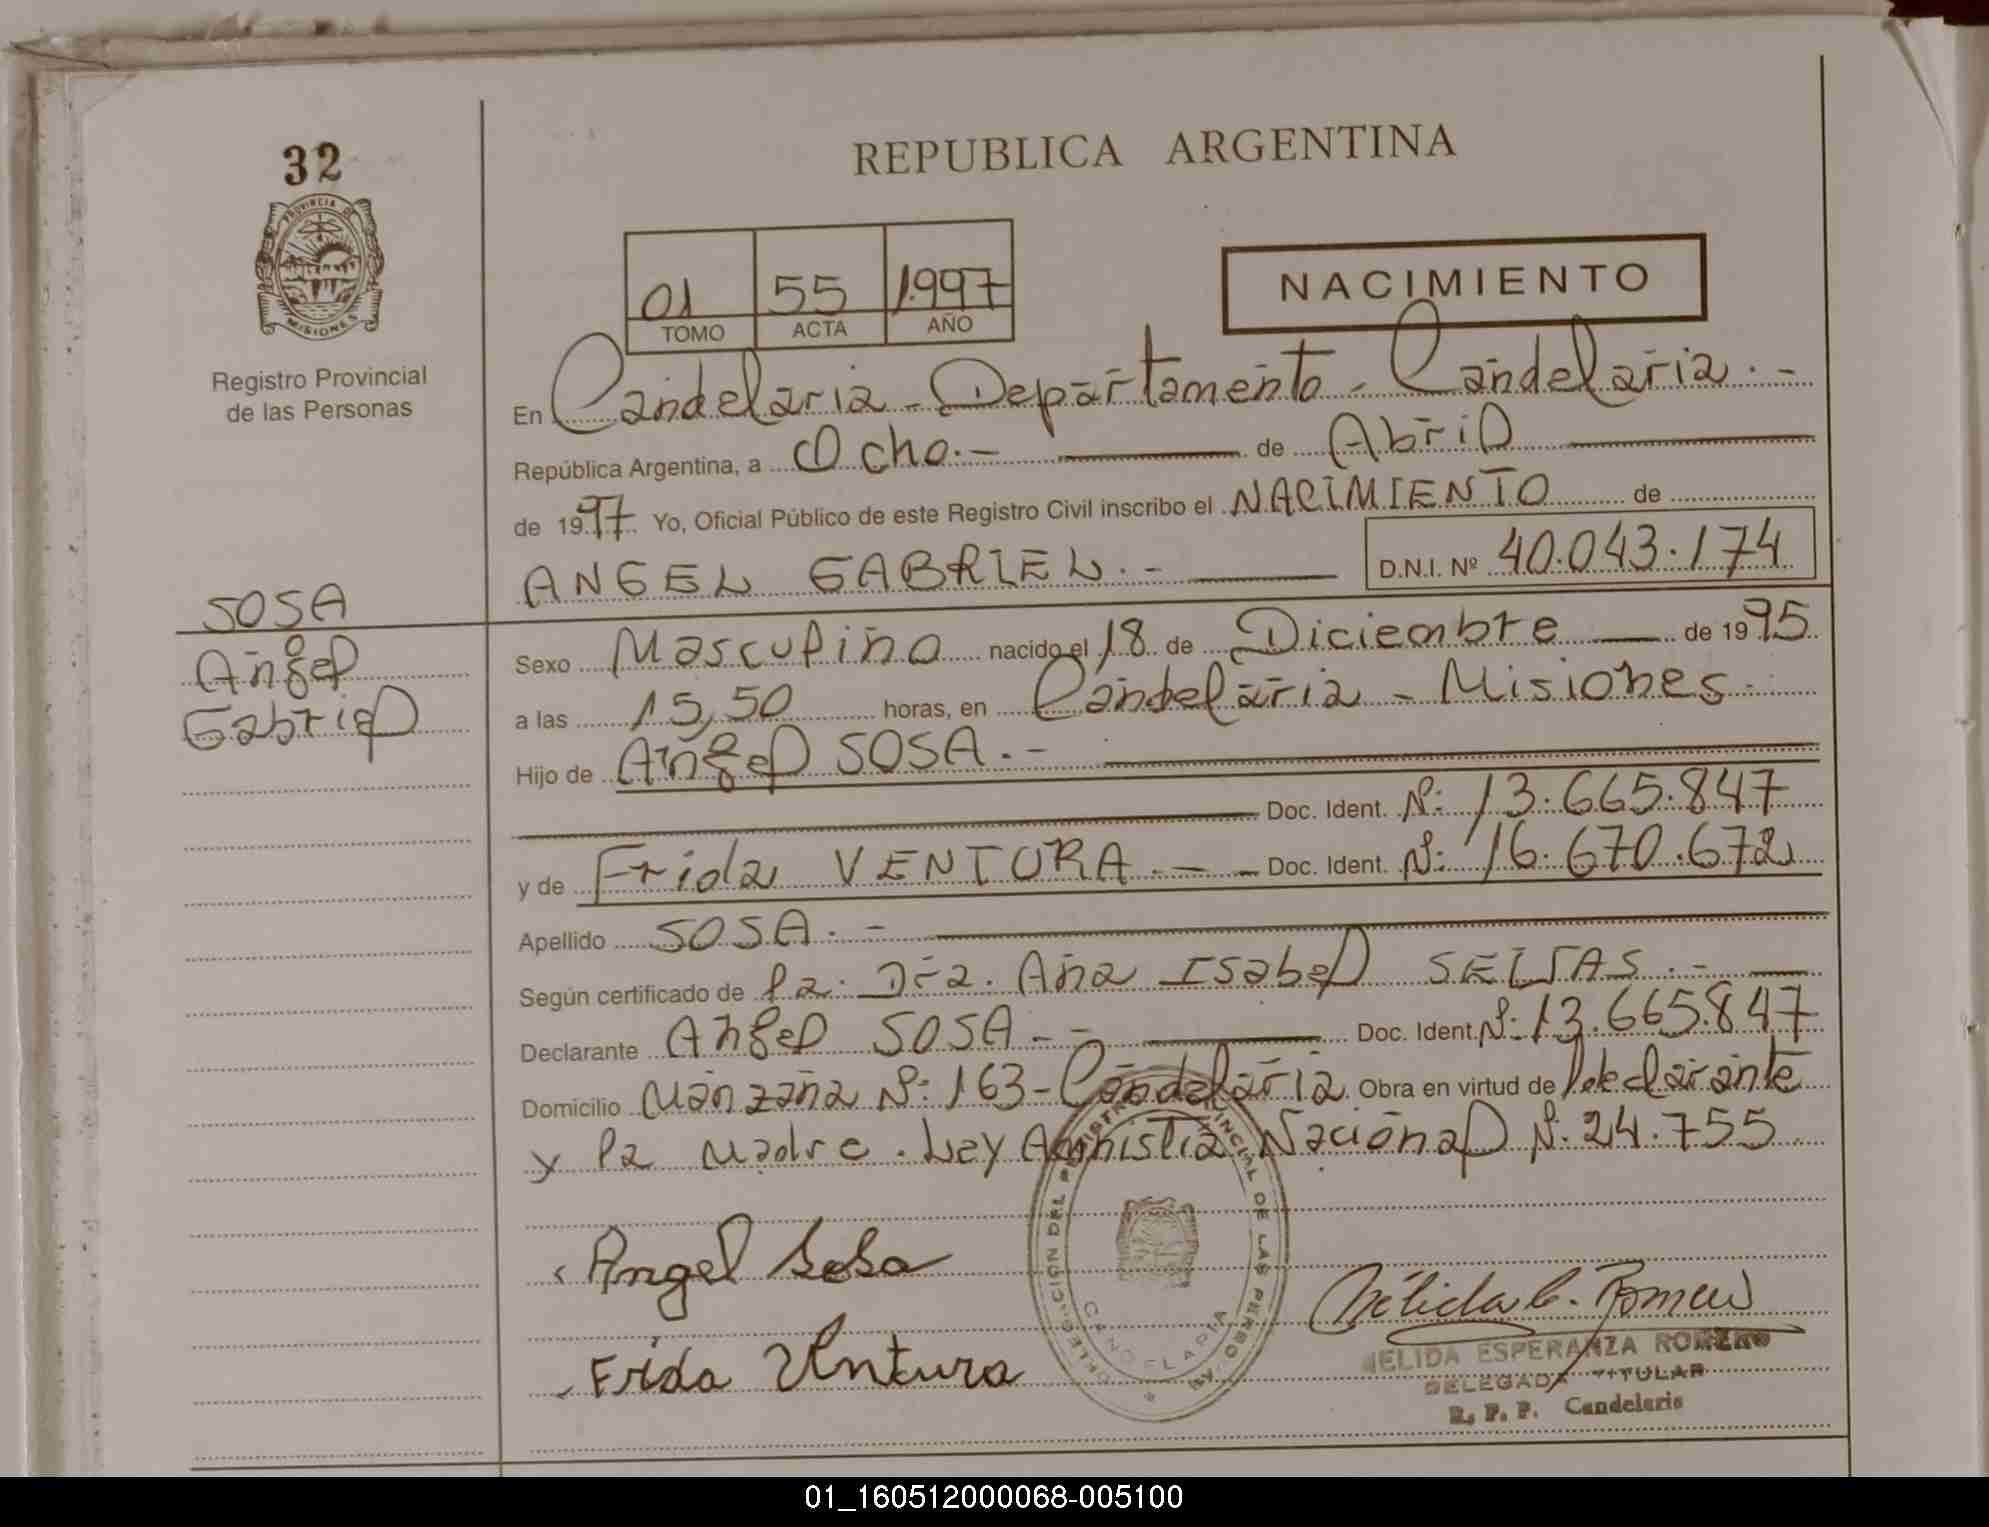 32
PROVINCIA DE
MISIONES
Registro Provincial
de las Personas
SOSA
Angel
Gabriel
REPUBLICA ARGENTINA
01 55 1.997
TOMO ACTA AÑO
NACIMIENTO
En Candelaria - Departamento - Candelaria . -
República Argentina, a Ocho.- de Abril
de 1997. Yo, Oficial Público de este Registro Civil inscribo el NACIMIENTO de
ANGEL GABRIEL . - D.N.I. Nº 40.043.174
Sexo Masculino nacido el 18 de Diciembre de 1995
a las 15,50 horas, en Candelaria - Misiones -
Hijo de Angel SOSA . -
Doc. Ident. Nº: 13.665.847
y de Frida VENTURA . - - Doc. Ident. Nº: 16.670.672
Apellido SOSA . -
Según certificado de la Dra. Ana Isabel SEIJAS . -
Declarante Angel SOSA - - Doc. Ident. Nº: 13.665.847
Domicilio Manzana Nº: 163 - Candelaria Obra en virtud de Declarante
y la Madre . Ley Amnistia Nacional Nº. 24.755
Angel Sosa
Frida Ventura
DELEGACION DEL REGISTRO PROVINCIAL DE LAS PERSONAS
CANDELARIA
Nélida E. Romero
NELIDA ESPERANZA ROMERO
DELEGADA TITULAR
R. P. P. Candelaria
01_160512000068-005100